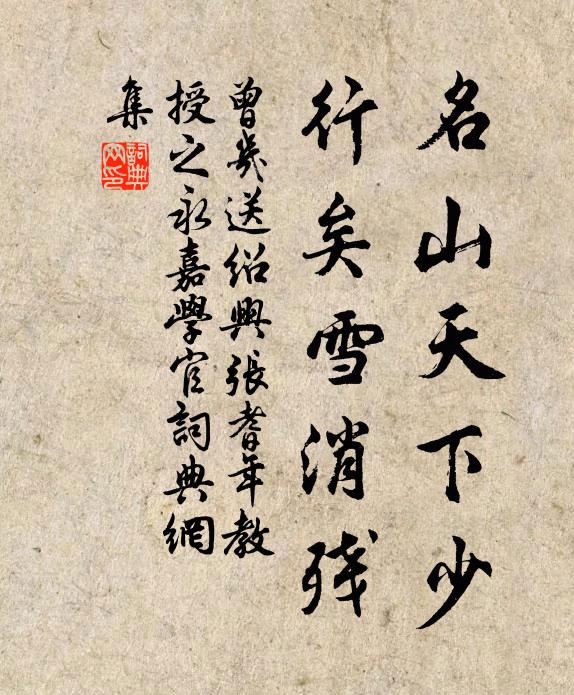 名山天下少
行矣雪消残
曾幾送紹興張耆年教
授之永嘉學官詞典網
集
詞典
网印